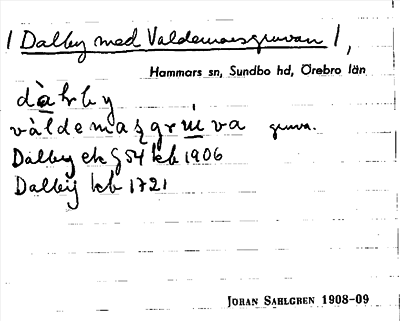 / Dalby med Valdemarsgruvan /,
Hammars sn, Sundbo hd, Örebro län
dàlby
vàldemaʂgrúva gruva.
Dalby ek § 54 kb 1906
Dalbÿ kb 1721
JOHAN SAHLGREN 1908-09